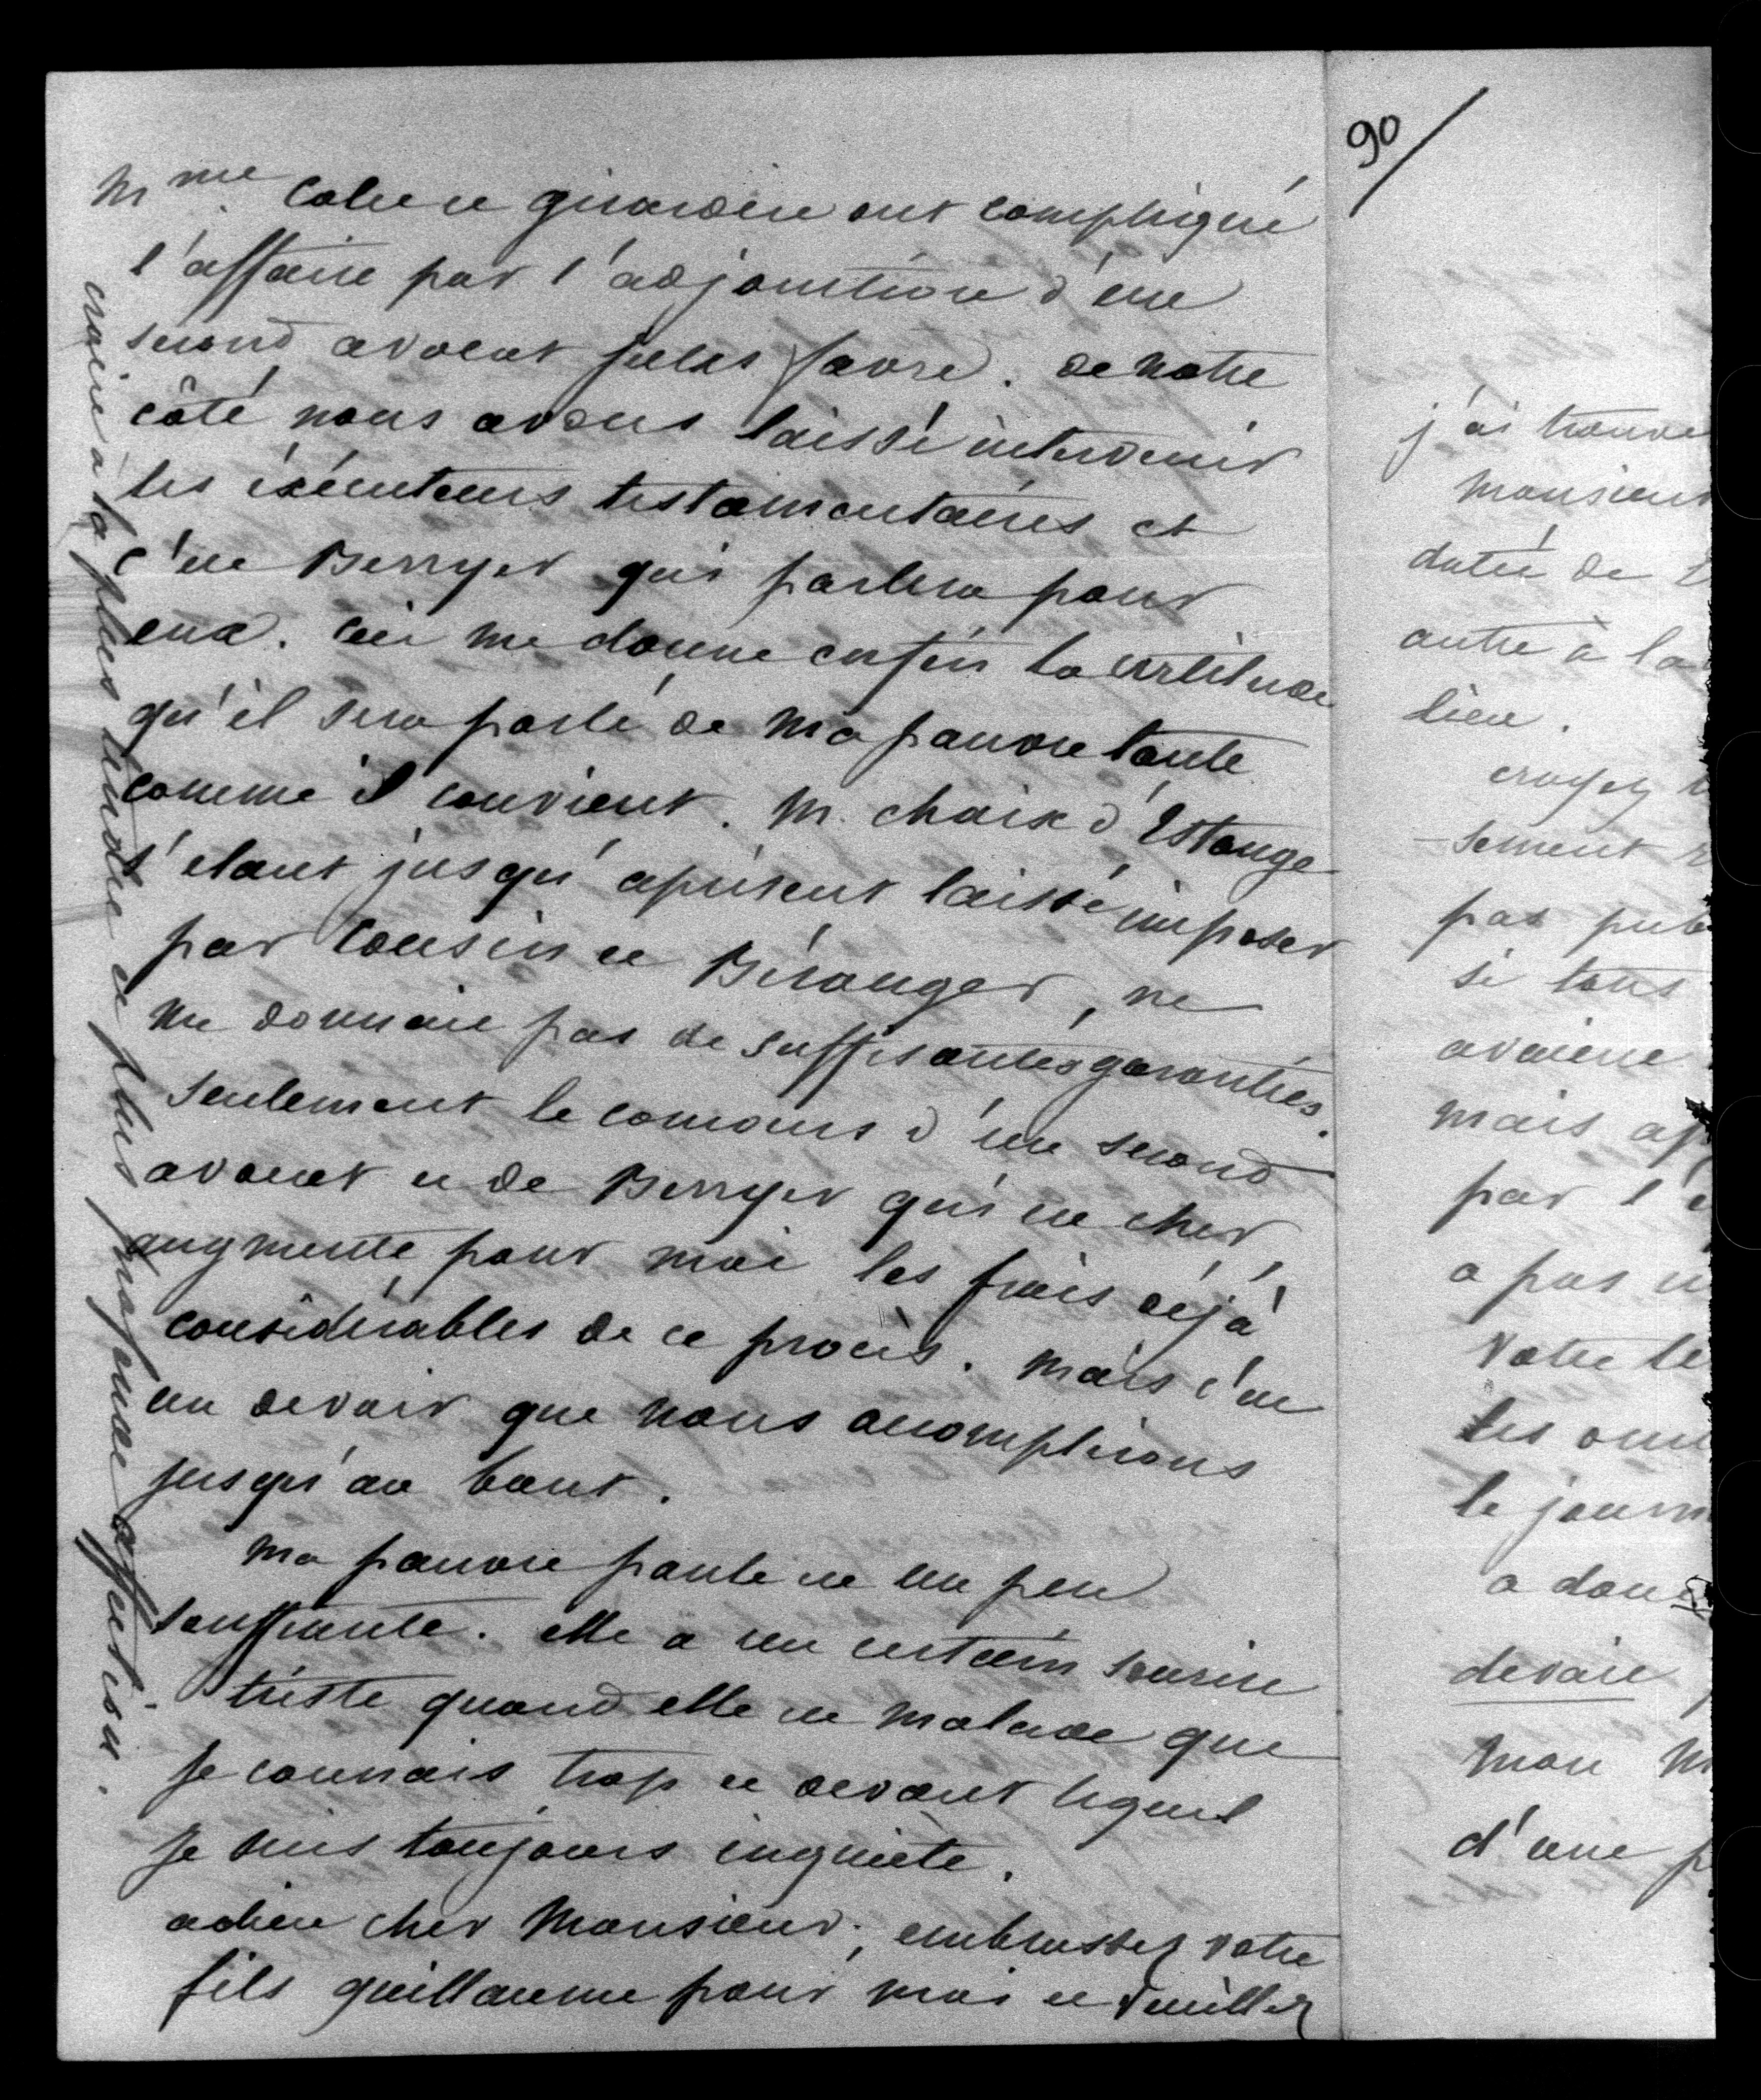 90/
Mme Colet et girardin ont compliqué
l'affaire par l'adjonction d'un
second avocat jules favre. de notre
côté nous avons laissé intervenir
les éxécuteurs testamentaires et
c'est Berryer qui parlera pour
eux. ceci me donne enfin la certitude
qu'il sera parlé de ma pauvre tante
comme il convient. M. chaix d'Estange
s'étant jusqu'àprésent laissé imposer
par Cousin et Béranger, ne
me donnait pas de suffisantes garanties.
seulement le concours d'un second
avocat et de Berryer qui est cher,
augmente pour moi les frais déjà
considérables de ce procès. mais c'est
un devoir que nous accomplirons
jusqu'au bout.
Ma pauvre paule est un peu
souffrante. elle a un certain sourire
triste quand elle est malade que
je connais trop et devant lequel
je suis toujours inquiète.
adieu cher Monsieur, embrassez votre
fils guillaume pour moi et veuillez
croire à la plus tendre et plus profonde affection.
j'ai trouvé
Monsieur
datée de
autre à la
lieu.
croyez
-sement
pas
si tous
avaient
mais
par l'
a pas
Votre
les
le
a
devait
mon
d'une